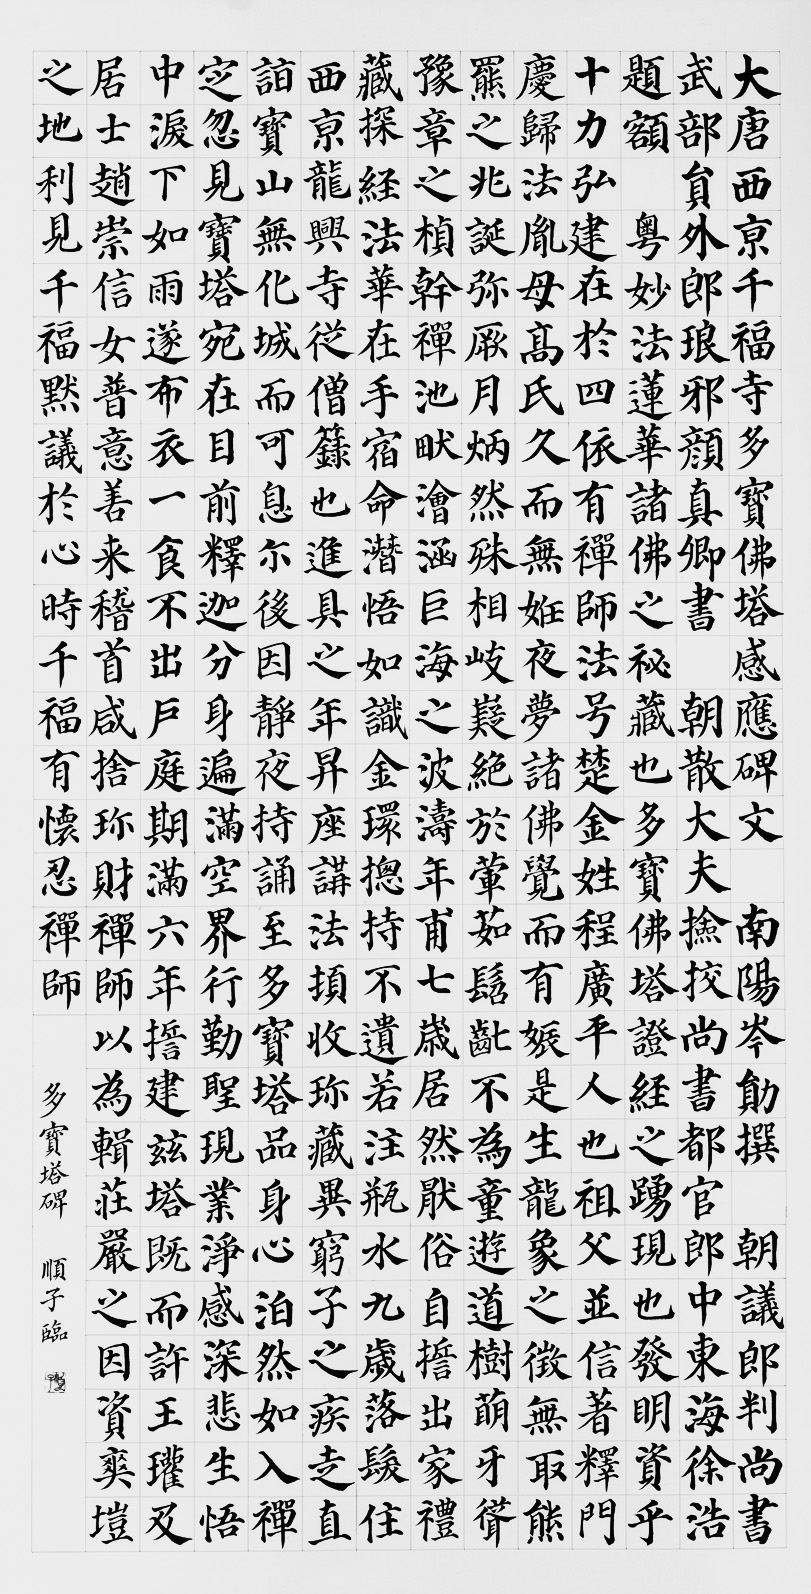 大唐西京千福寺多寶佛塔感應碑文 南陽岑勛撰 朝議郎判尚書
武部貟外郎琅邪顔真卿書 朝散大夫撿挍尚書都官郎中東海徐浩
題額 粤妙法蓮華諸佛之祕藏也多寶佛塔證経之踴現也發明資乎
十力弘建在於四依有禪師法号楚金姓程廣平人也祖父並信著釋門
慶歸法胤母髙氏久而無姙夜夢諸佛覺而有娠是生龍象之徵無取熊
羆之兆誕弥厥月炳然殊相岐嶷絶於葷茹髫齓不為童遊道樹萌牙聳
豫章之楨幹禪池畎澮涵巨海之波濤年甫七歳居然厭俗自誓出家禮
藏探経法華在手宿命潛悟如識金環揔持不遺若注瓶水九歳落髮住
西京龍興寺従僧籙也進具之年昇座講法頓收珎藏異窮子之疾走直
詣寶山無化城而可息尓後因靜夜持誦至多寶塔品身心泊然如入禪
定忽見寶塔宛在目前釋迦分身遍滿空界行勤聖現業淨感深悲生悟
中淚下如雨遂布衣一食不出戶庭期滿六年誓建兹塔既而許王瓘及
居士趙崇信女普意善来稽首咸捨珎財禪師以為輯莊嚴之因資爽塏
之地利見千福黙議於心時千福有懷忍禪師
多寶塔碑 順子臨